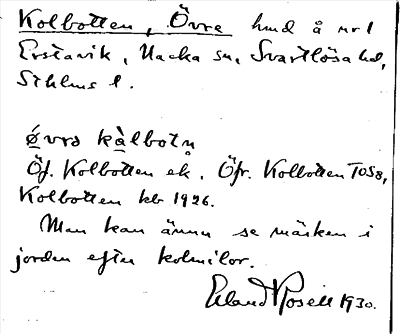 Kolbotten, Övre hmd å nr 1
Erstavik, Nacka sn, Svartlösa hd,
Sthlms l.
øvrə kàlbotn
Öf. Kolbotten ek. Öfr. Kolbotten TOS8,
Kolbotten kb 1926.
Man kan ännu se märken i
jorden efter kolmilor.
Erland Rosell 1930.